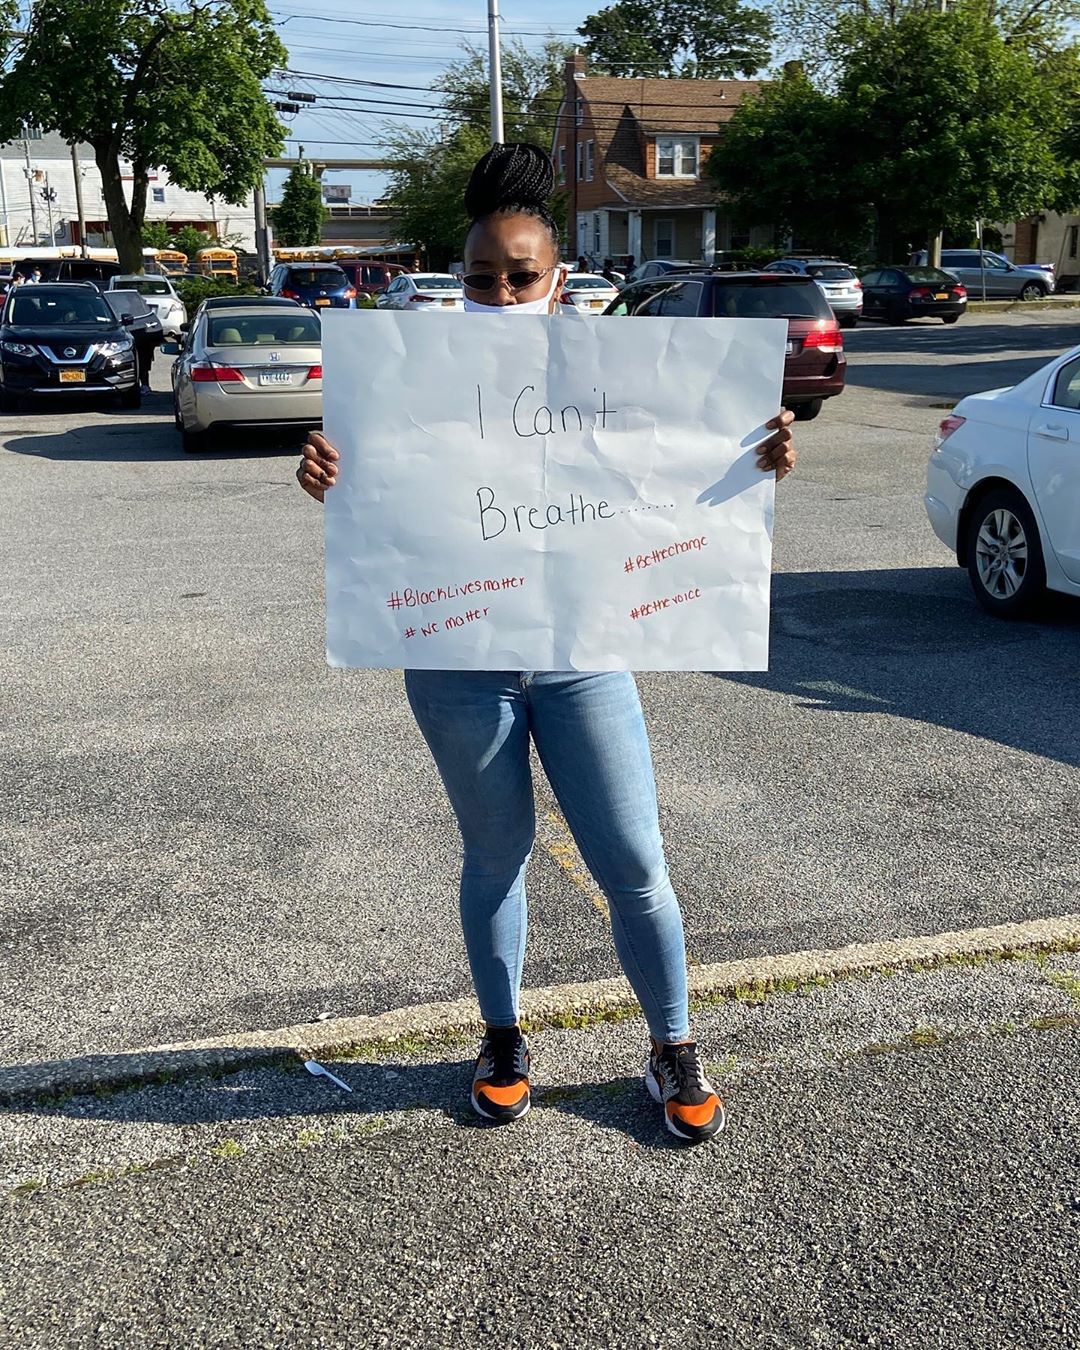 I Can't
Breathe........
#BlackLivesmatter
# we matter
#Bethechange
#Bethevoice